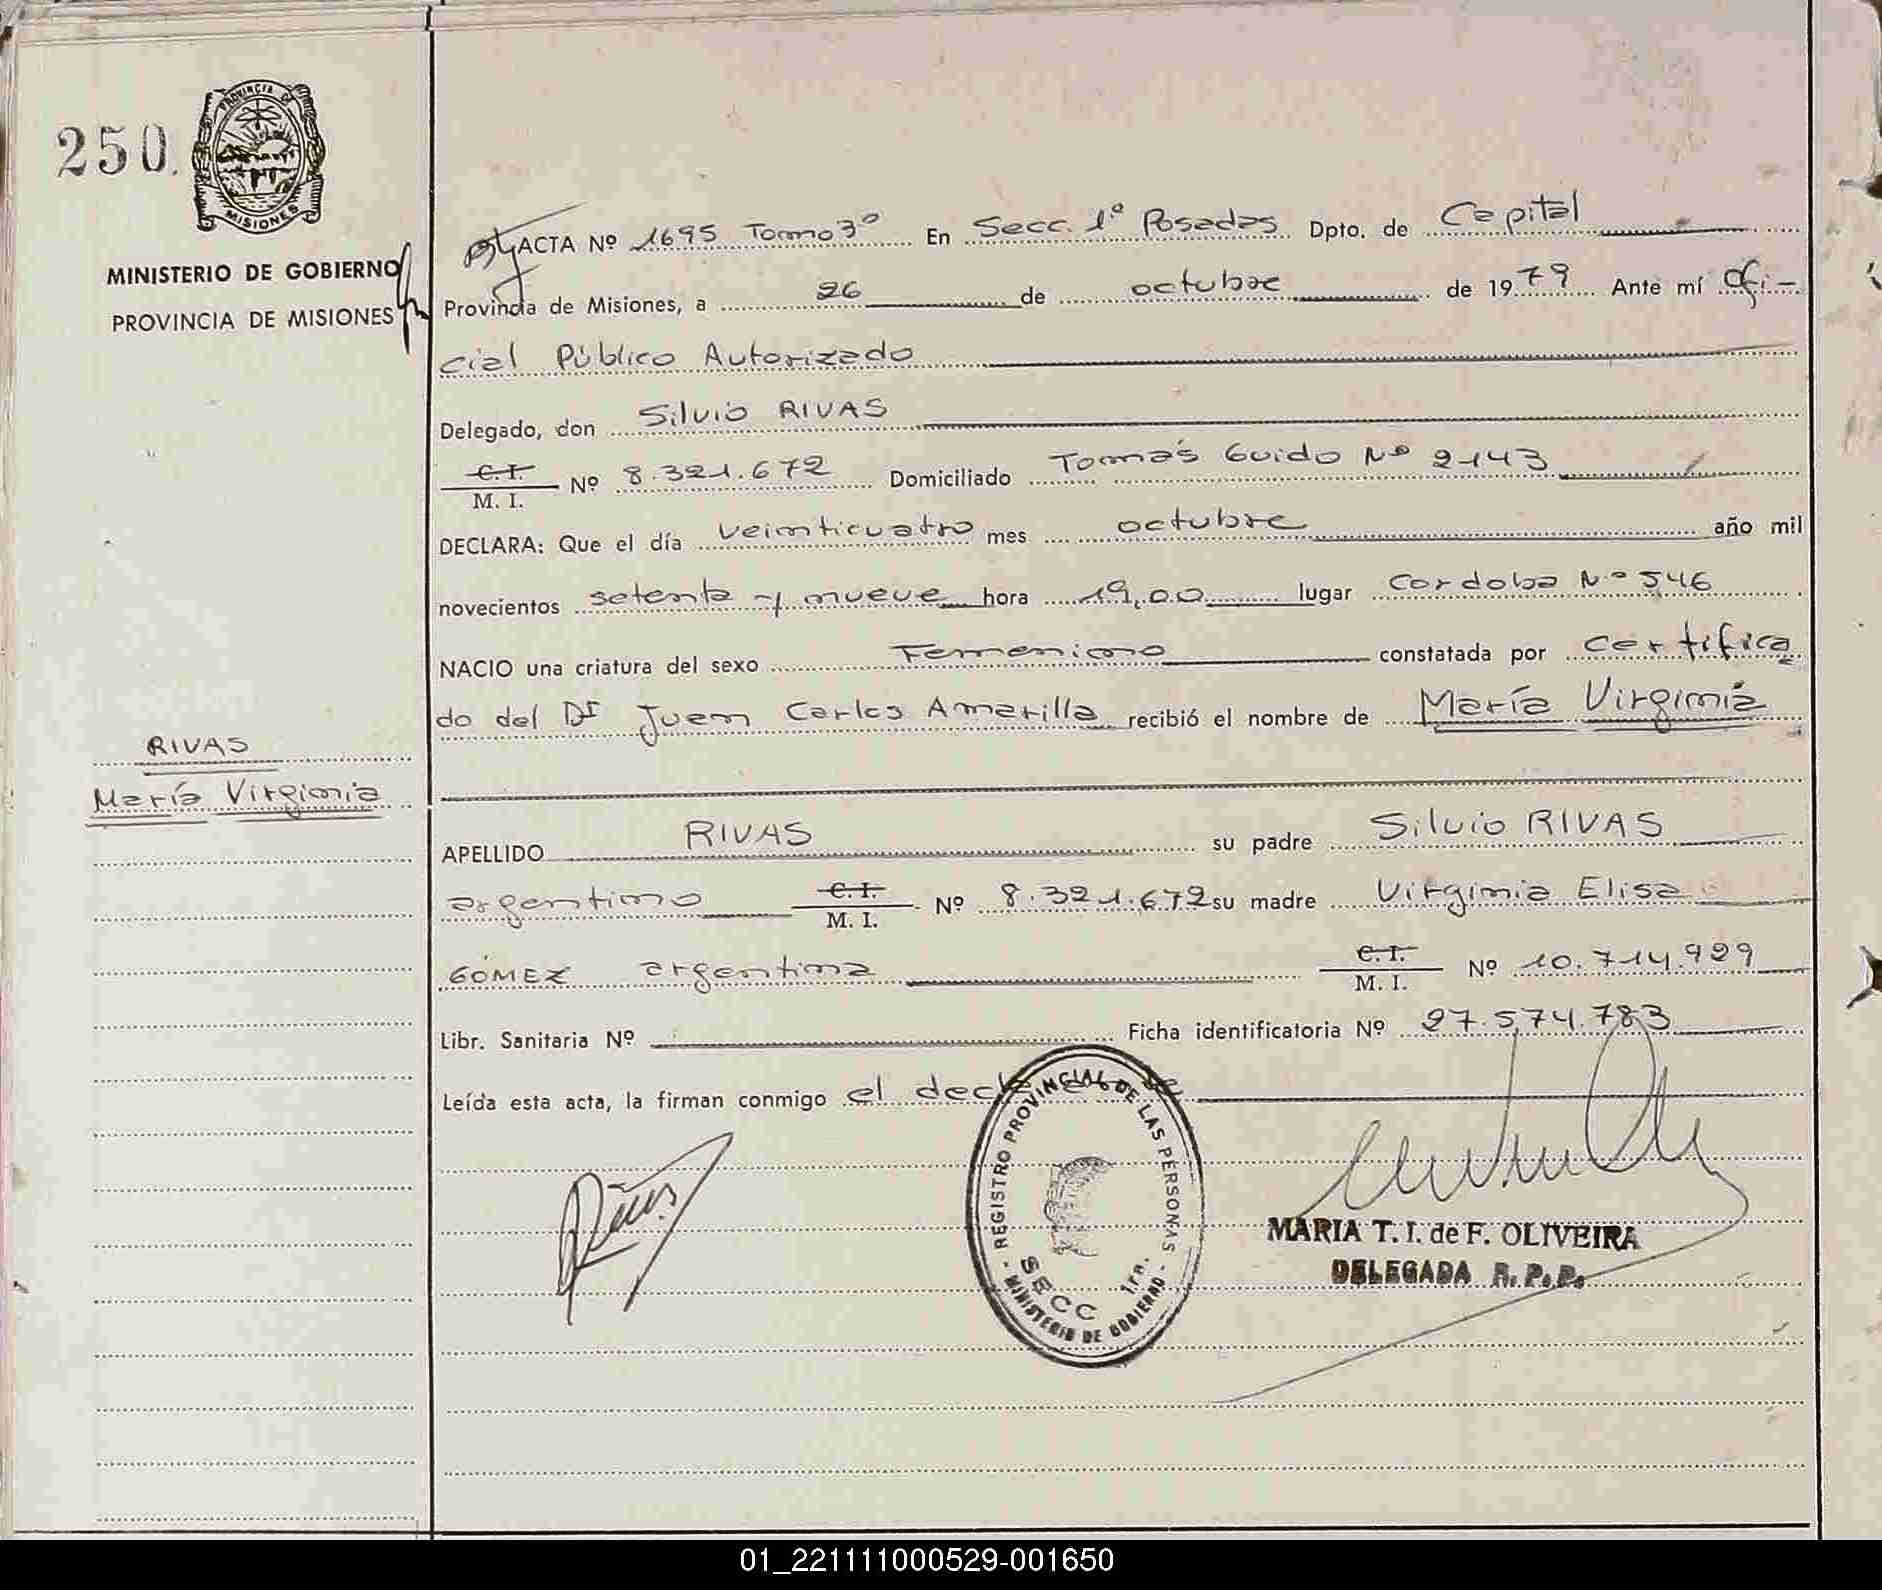 250.
PROVINCIA DE
MISIONES
MINISTERIO DE GOBIERNO
PROVINCIA DE MISIONES
RIVAS
María Virginia
ACTA Nº 1695 Tomo 3º En Secc. 1º Posadas Dpto. de Capital
Provincia de Misiones, a 26 de octubre de 1979 Ante mí Ofi-
cial Público Autorizado
Delegado, don Silvio RIVAS
C.I. / M. I. Nº 8.321.672 Domiciliado Tomás Guido Nº 2143
DECLARA: Que el día veinticuatro mes octubre año mil
novecientos setenta y nueve hora 19,00 lugar Cordoba Nº 546
NACIO una criatura del sexo Femenino constatada por certifica
do del Dr Juan Carlos Amarilla recibió el nombre de María Virginia
APELLIDO RIVAS su padre Silvio RIVAS
argentino C.I. / M. I. Nº 8.321.672 su madre Virginia Elisa
GÓMEZ argentina C.I. / M. I. Nº 10.714.929
Libr. Sanitaria Nº Ficha identificatoria Nº 27.574.783
Leída esta acta, la firman conmigo el declarante
Rivas
- REGISTRO PROVINCIAL DE LAS PERSONAS -
SECC 1ra.
MINISTERIO DE GOBIERNO
MARIA T. I. de F. OLIVEIRA
DELEGADA R. P. P.
01_221111000529-001650